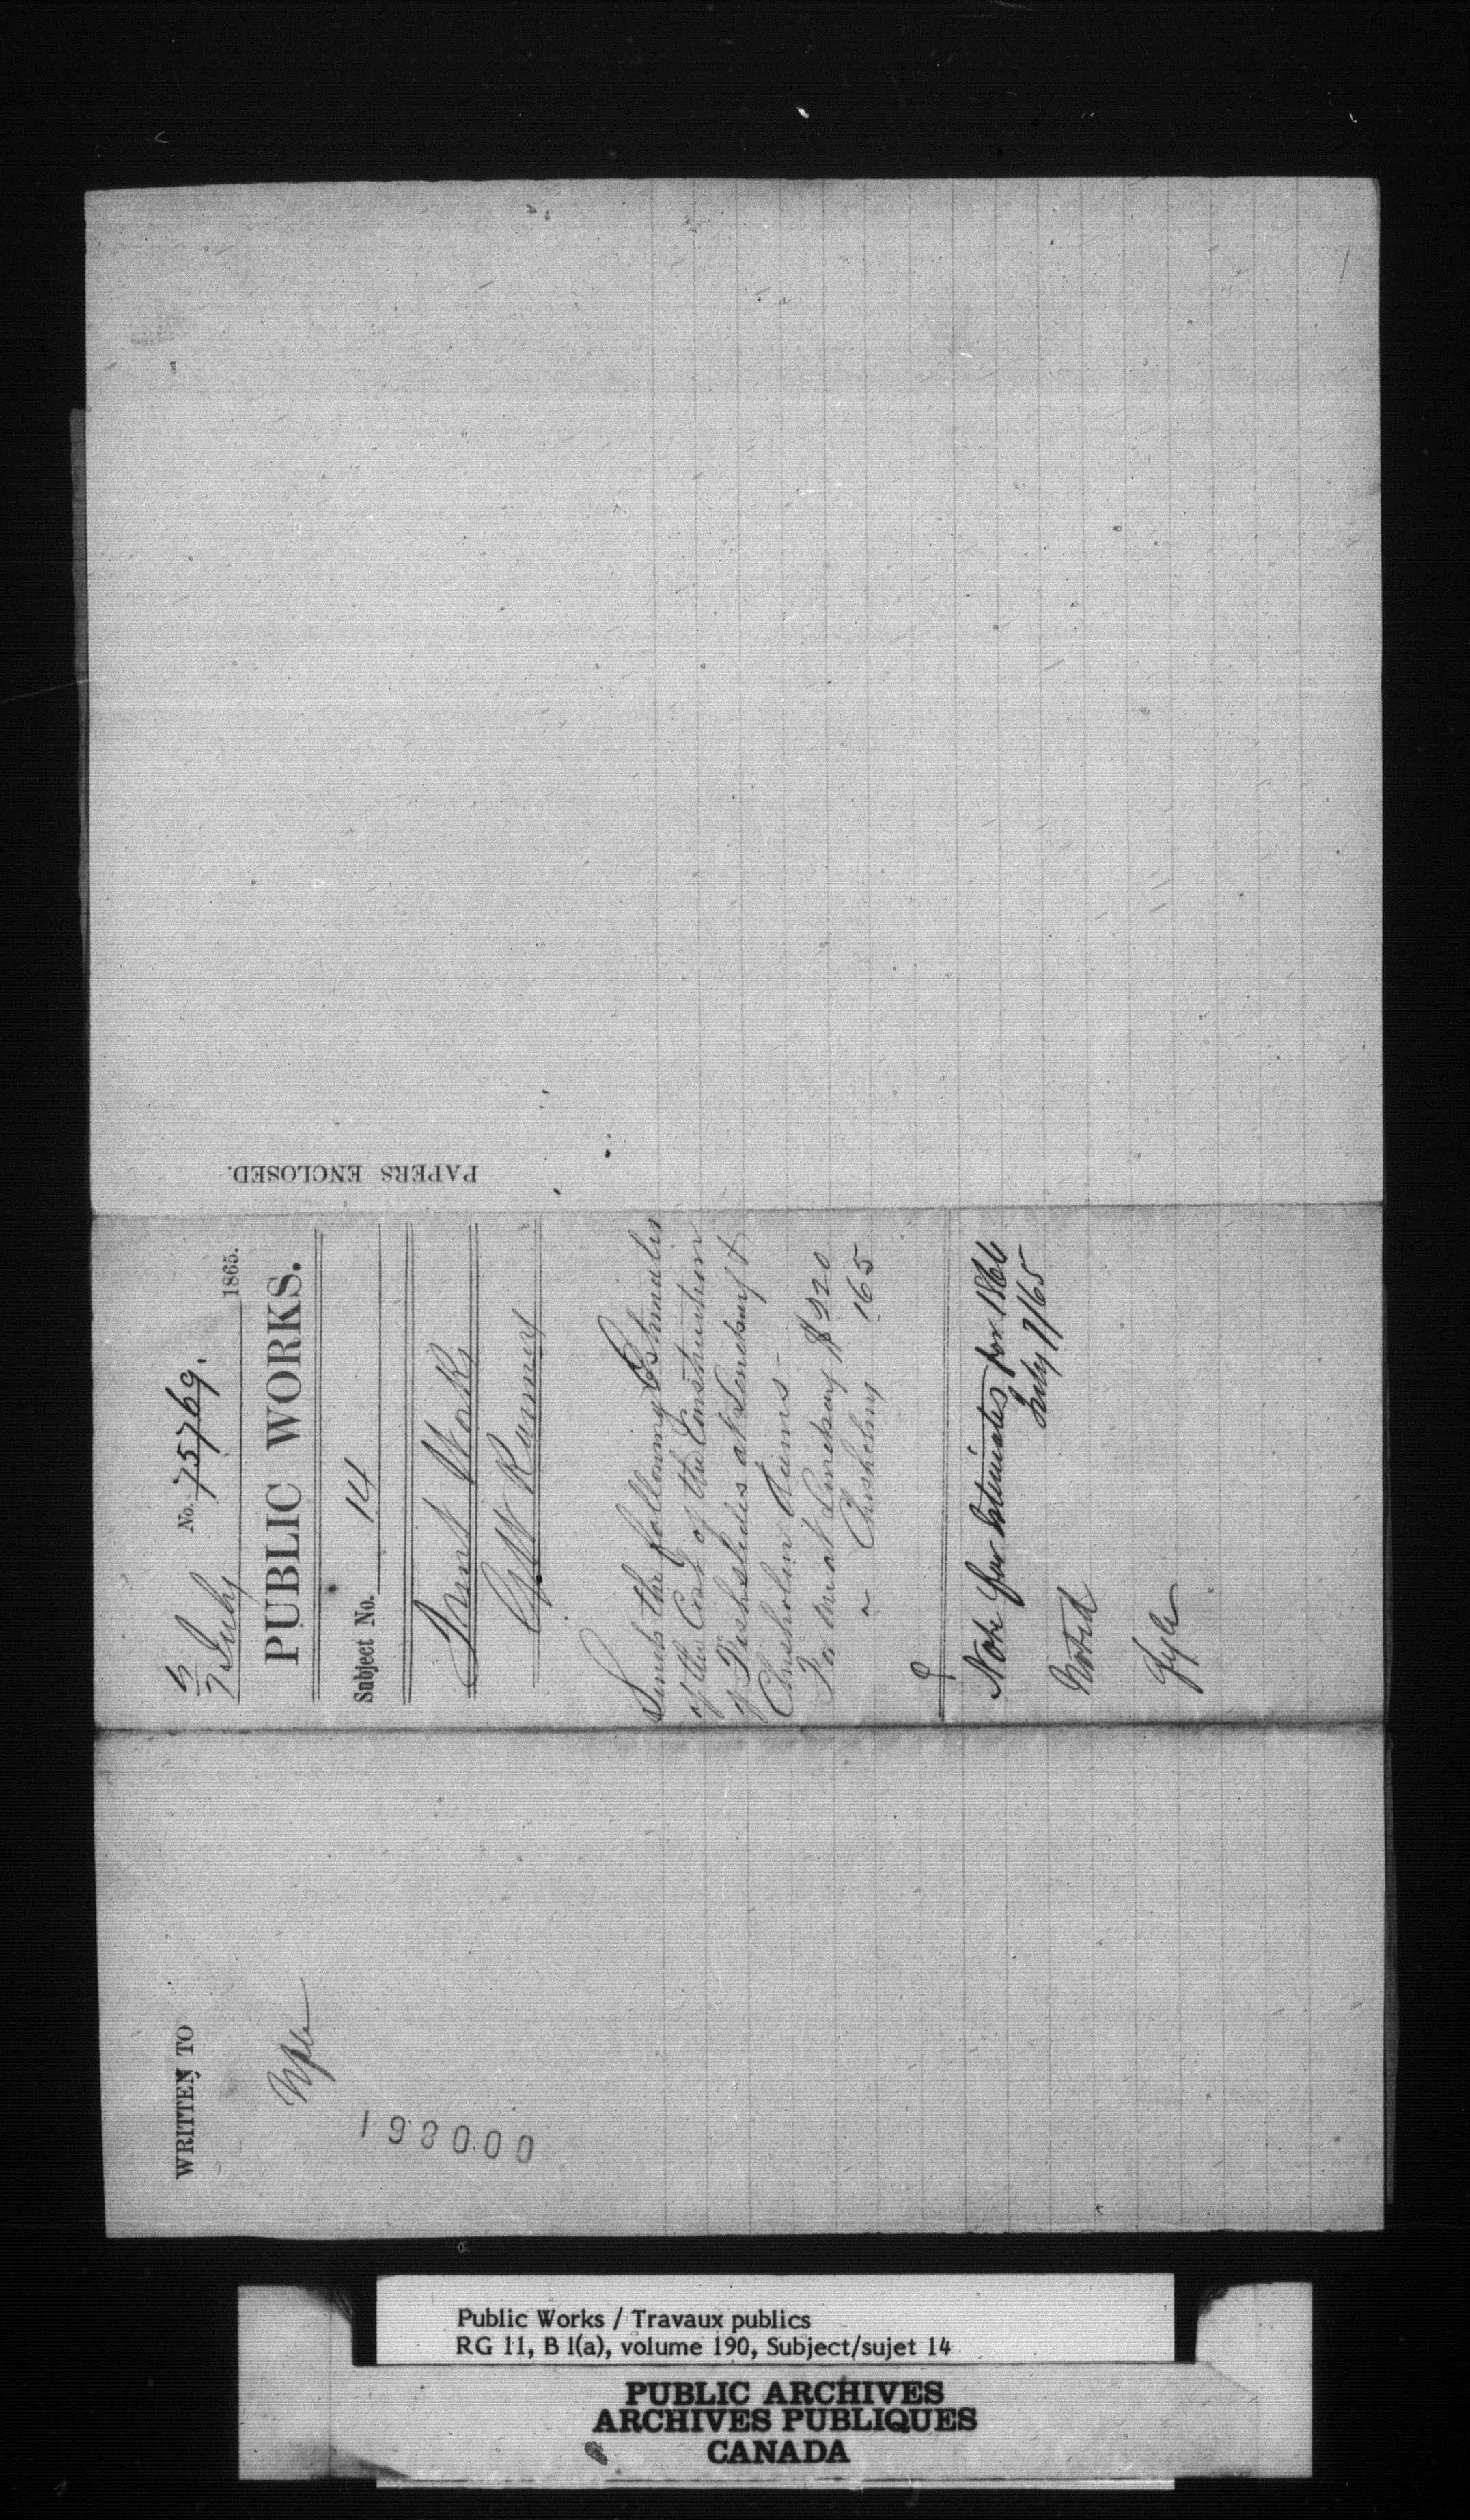 PAPERS ENCLOSED.
5/7 July No. 75769. 1865.
PUBLIC WORKS.
Subject No. 14
Trent Works
G W Ranney
Sends the following Estimates
of the Cost of the Construction
of Fishslides at Lindsay &
Chisholm Dams—
For one at Lindsay $220
" Chisholms 165
Note for Estimates for 1866
July 7/65
Noted
WRITTEN TO
198000
Public Works / Travaux publics
RG 11, B 1(a), volume 190, Subject/sujet 14
PUBLIC ARCHIVES
ARCHIVES PUBLIQUES
CANADA